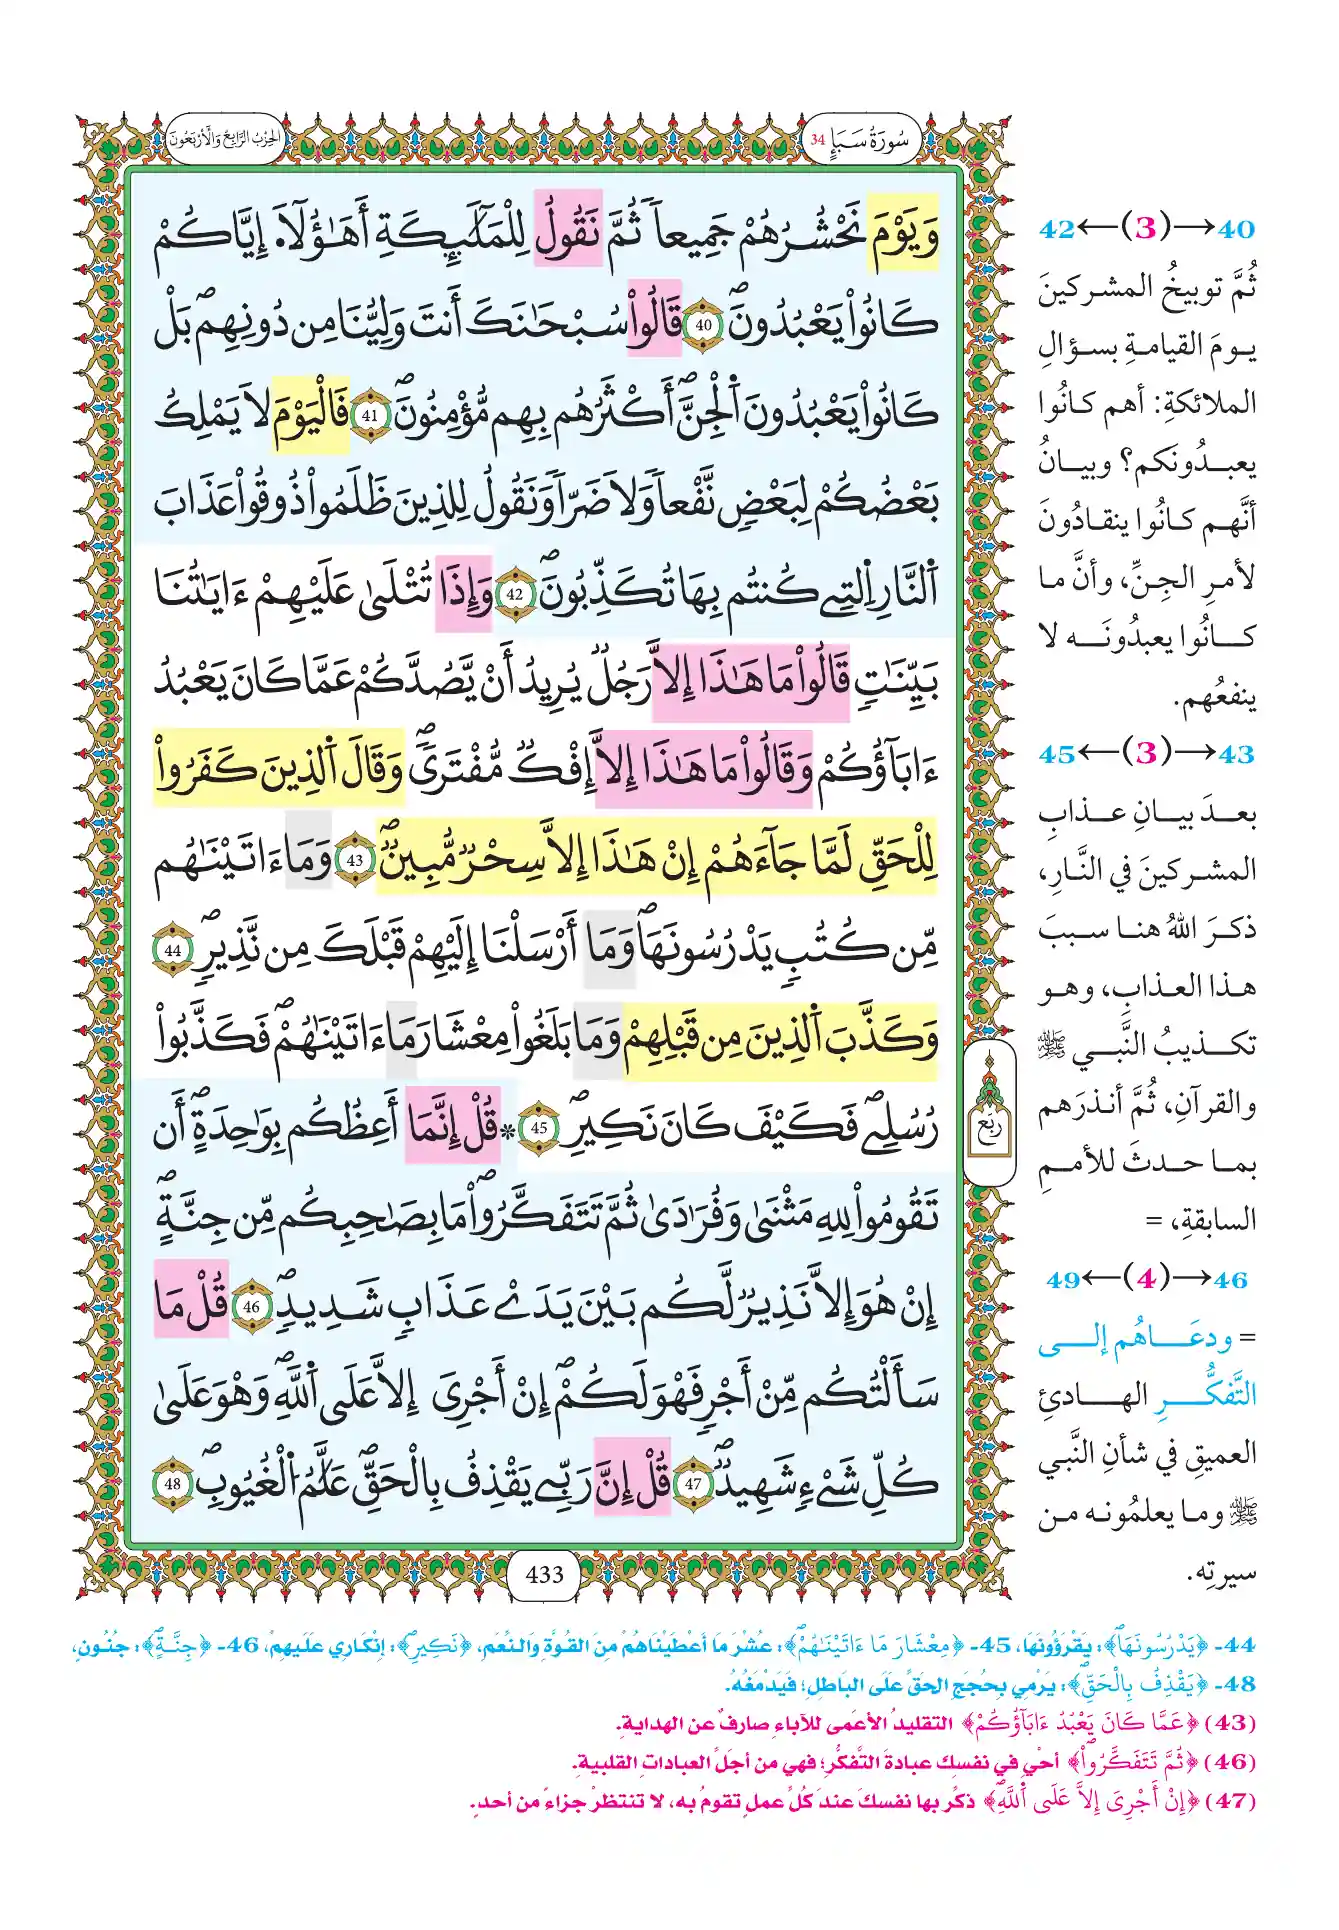 سُورَةُ سَبَإٍ 34
الحِزْبُ الرَّابِعُ وَالْأَرْبَعُونَ
وَيَوْمَ نَحْشُرُهُمْ جَمِيعاً ثُمَّ نَقُولُ لِلْمَلَٰٓئِكَةِ أَهَٰٓؤُلَآءِ ا۪يَّاكُمْ
كَانُواْ يَعْبُدُونَۖ 40 قَالُواْ سُبْحَٰنَكَ أَنتَ وَلِيُّنَا مِن دُونِهِمۖ بَلْ
كَانُواْ يَعْبُدُونَ اَ۬لْجِنَّۖ أَكْثَرُهُم بِهِم مُّؤْمِنُونَۖ 41 فَالْيَوْمَ لَا يَمْلِكُ
بَعْضُكُمْ لِبَعْضٍ نَّفْعاً وَلَا ضَرّاً وَنَقُولُ لِلذِينَ ظَلَمُواْ ذُوقُواْ عَذَابَ
اَ۬لنَّارِ اِ۬لتِے كُنتُم بِهَا تُكَذِّبُونَۖ 42 وَإِذَا تُتْلَىٰ عَلَيْهِمْ ءَايَٰتُنَا
بَيِّنَٰتٖ قَالُواْ مَا هَٰذَا إِلَّا رَجُلٌ يُرِيدُ أَنْ يَّصُدَّكُمْ عَمَّا كَانَ يَعْبُدُ
ءَابَآؤُكُمْ وَقَالُواْ مَا هَٰذَا إِلَّا إِفْكٌ مُّفْتَرىٗۖ وَقَالَ اَ۬لذِينَ كَفَرُواْ
لِلْحَقِّ لَمَّا جَآءَهُمْ إِنْ هَٰذَا إِلَّا سِحْرٌ مُّبِينٌۖ 43 وَمَا ءَاتَيْنَٰهُم
مِّن كُتُبٍ يَدْرُسُونَهَاۖ وَمَا أَرْسَلْنَا إِلَيْهِمْ قَبْلَكَ مِن نَّذِيرٍۖ 44
وَكَذَّبَ اَ۬لذِينَ مِن قَبْلِهِمْ وَمَا بَلَغُواْ مِعْشَارَ مَا ءَاتَيْنَٰهُمْۖ فَكَذَّبُواْ
رُسُلِےۖ فَكَيْفَ كَانَ نَكِيرِۖ 45 * قُلْ إِنَّمَا أَعِظُكُم بِوَٰحِدَةٍۖ أَن
تَقُومُواْ لِلهِ مَثْنَىٰ وَفُرَٰدَىٰ ثُمَّ تَتَفَكَّرُواْۖ مَا بِصَاحِبِكُم مِّن جِنَّةٍۖ
إِنْ هُوَ إِلَّا نَذِيرٌ لَّكُم بَيْنَ يَدَےْ عَذَابٍ شَدِيدٍۖ 46 قُلْ مَا
سَأَلْتُكُم مِّنْ أَجْرٍ فَهُوَ لَكُمْۖ إِنْ أَجْرِيَ إِلَّا عَلَى اَ۬للَّهِۖ وَهُوَ عَلَىٰ
كُلِّ شَےْءٍ شَهِيدٌۖ 47 قُلْ إِنَّ رَبِّے يَقْذِفُ بِالْحَقِّۖ عَلَّٰمُ اُ۬لْغُيُوبِۖ 48
رُبُع
433
40→(3)←42
ثُمَّ توبيخُ المشركينَ
يومَ القيامةِ بسؤالِ
الملائكةِ: أهم كانُوا
يعبدُونَكم؟ وبيانُ
أنَّهم كانُوا ينقادُونَ
لأمرِ الجِنِّ، وأنَّ ما
كانُوا يعبدُونَه لا
ينفعُهم.
43→(3)←45
بعدَ بيانِ عذابِ
المشركينَ في النَّارِ،
ذكرَ اللهُ هنا سببَ
هذا العذابِ، وهو
تكذيبُ النَّبي ﷺ
والقرآنِ، ثُمَّ أنذرَهم
بما حدثَ للأممِ
السابقةِ، =
46→(4)←49
= ودعَاهُم إلى
التَّفكُّرِ الهادئِ
العميقِ في شأنِ النَّبي
ﷺ وما يعلمُونه من
سيرتِه.
44- ﴿يَدْرُسُونَهَاۖ﴾: يَقْرَؤُونَهَا، 45- ﴿مِعْشَارَ مَا ءَاتَيْنَٰهُمْۖ﴾: عُشْرَ مَا أَعْطَيْنَاهُمْ مِنَ القُوَّةِ وَالنِّعَمِ، ﴿نَكِيرِۖ﴾: إِنْكَارِي عَلَيهِمْ، 46- ﴿جِنَّةٍۖ﴾: جُنُونٍ،
48- ﴿يَقْذِفُ بِالْحَقِّۖ﴾: يَرْمِي بِحُجَجِ الحَقِّ عَلَى البَاطِلِ؛ فَيَدْمَغُهُ.
(43) ﴿عَمَّا كَانَ يَعْبُدُ ءَابَآؤُكُمْ﴾ التقليدُ الأعمَى للآباءِ صارفٌ عن الهدايةِ.
(46) ﴿ثُمَّ تَتَفَكَّرُواْۖ﴾ أحْيِ في نفسِك عبادةَ التَّفكُّرِ؛ فهي من أجَلِّ العباداتِ القلبيةِ.
(47) ﴿إِنْ أَجْرِيَ إِلَّا عَلَى اَ۬للَّهِۖ﴾ ذكِّر بها نفسَكَ عندَ كُلِّ عملٍ تقومُ به، لا تنتظرْ جزاءً من أحدٍ.